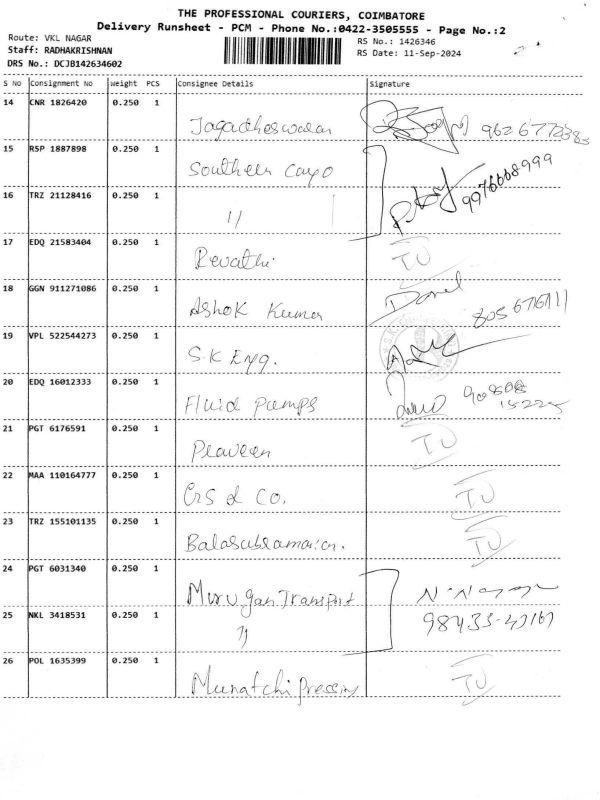 THE PROFESSIONAL COURIERS, COIMBATORE
Delivery Runsheet - PCM - Phone No.:0422-3505555 - Page No.:2
Route: VKL NAGAR
RS No.: 1426346
Staff: RADHAKRISHNAN
RS Date: 11-Sep-2024
DRS No.: DCJB142634602
S No Consignment No Weight PCS Consignee Details Signature
14 CNR 1826420 0.250 1 Jagadheswaran
15 RSP 1887898 0.250 1 Southern Cargo
16 TRZ 21128416 0.250 1 11 9976668999
17 EDQ 21583404 0.250 1 Revathi TU
18 GGN 911271086 0.250 1 Ashok Kumar
19 VPL 522544273 0.250 1 S.K Eng.
20 EDQ 16012333 0.250 1 Fluid Pumps
21 PGT 6176591 0.250 1 Praveen TU
22 MAA 110164777 0.250 1 & Co. TU
23 TRZ 155101135 0.250 1 Balasubramanian. TU
24 PGT 6031340 0.250 1 Murugan Transport
25 NKL 3418531 0.250 1 11
26 POL 1635399 0.250 1 Munatchi Pressing TU